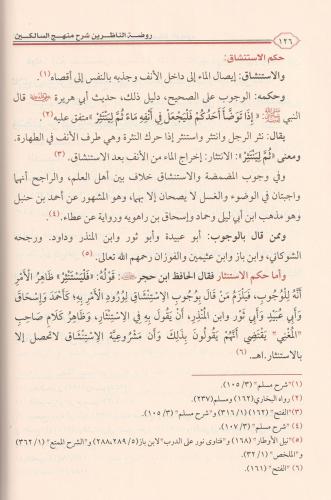 ١٢٦
روضة الناظرين شرح منهج السالكين
حكم الاستنشاق:
والاستنشاق: إيصال الماء إلى داخل الأنف وجذبه بالنفس إلى أقصاه(١).
وحكمه: الوجوب على الصحيح، دليل ذلك، حديث أبي هريرة قال
النبي ﷺ: «إِذَا تَوَضَّأَ أَحَدُكُمْ فَلْيَجْعَلْ فِي أَنْفِهِ مَاءً ثُمَّ لِيَنْتَثِرْ» متفق عليه(٢).
يقال: نثر الرجل وانتثر واستنثر إذا حرك النثرة وهي طرف الأنف في الطهارة.
ومعنى «ثُمَّ لِيَنْتَثِرْ»: الانتثار: إخراج الماء من الأنف بعد الاستنشاق. (٣)
وفي وجوب المضمضة والاستنشاق خلاف بين أهل العلم، والراجح أنهما
واجبتان في الوضوء والغسل لا يصحان إلا بهما، وهو المشهور عن أحمد بن حنبل
وهو مذهب ابن أبي ليلى وحماد وإسحاق بن راهويه ورواية عن عطاء. (٤)
وممن قال بالوجوب: أبو عبيدة وأبو ثور وابن المنذر وداود. ورجحه
الشوكاني، وابن باز وابن عثيمين والفوزان رحمهم الله تعالى. (٥)
وأما حكم الاستنثار فقال الحافظ ابن حجر: قَوْلُهُ: «فَلْيَسْتَنْثِرْ» ظَاهِرُ الْأَمْرِ
أَنَّهُ لِلْوُجُوبِ، فَيَلْزَمُ مَنْ قَالَ بِوُجُوبِ الِاسْتِنْشَاقِ لِوُرُودِ الْأَمْرِ بِهِ كَأَحْمَدَ وَإِسْحَاقَ
وَأَبِي عُبَيْدٍ وَأَبِي ثَوْرٍ وابن الْمُنْذِرِ، أَنْ يَقُولَ بِهِ فِي الِاسْتِنْثَارِ، وَظَاهِرُ كَلَامِ صَاحِبِ
"الْمُغْنِي" يَقْتَضِي أَنَّهُمْ يَقُولُونَ بِذَلِكَ وَأَن مَشْرُوعِيَّةَ الِاسْتِنْشَاقِ لاتحصل إلا
بالاستنثار. اهـ. (٦)
(١) "شرح مسلم" (٣/ ١٠٥).
(٢) رواه البخاري (١٦٢) ومسلم (٢٣٧).
(٣) "الفتح" (١٦٢) (١/ ٣١٦) و"شرح مسلم" (٣/ ١٠٥).
(٤) "شرح مسلم" (٣/ ١٠٧).
(٥) "نيل الأوطار" (١٦٨) و"فتاوى نور على الدرب" لابن باز (٥/ ٢٨٩، ٢٨٨) و"الشرح الممتع" (١/ ٣٦٢)
و"الملخص" (١/ ٣٢).
(٦) "الفتح" (١٦١).